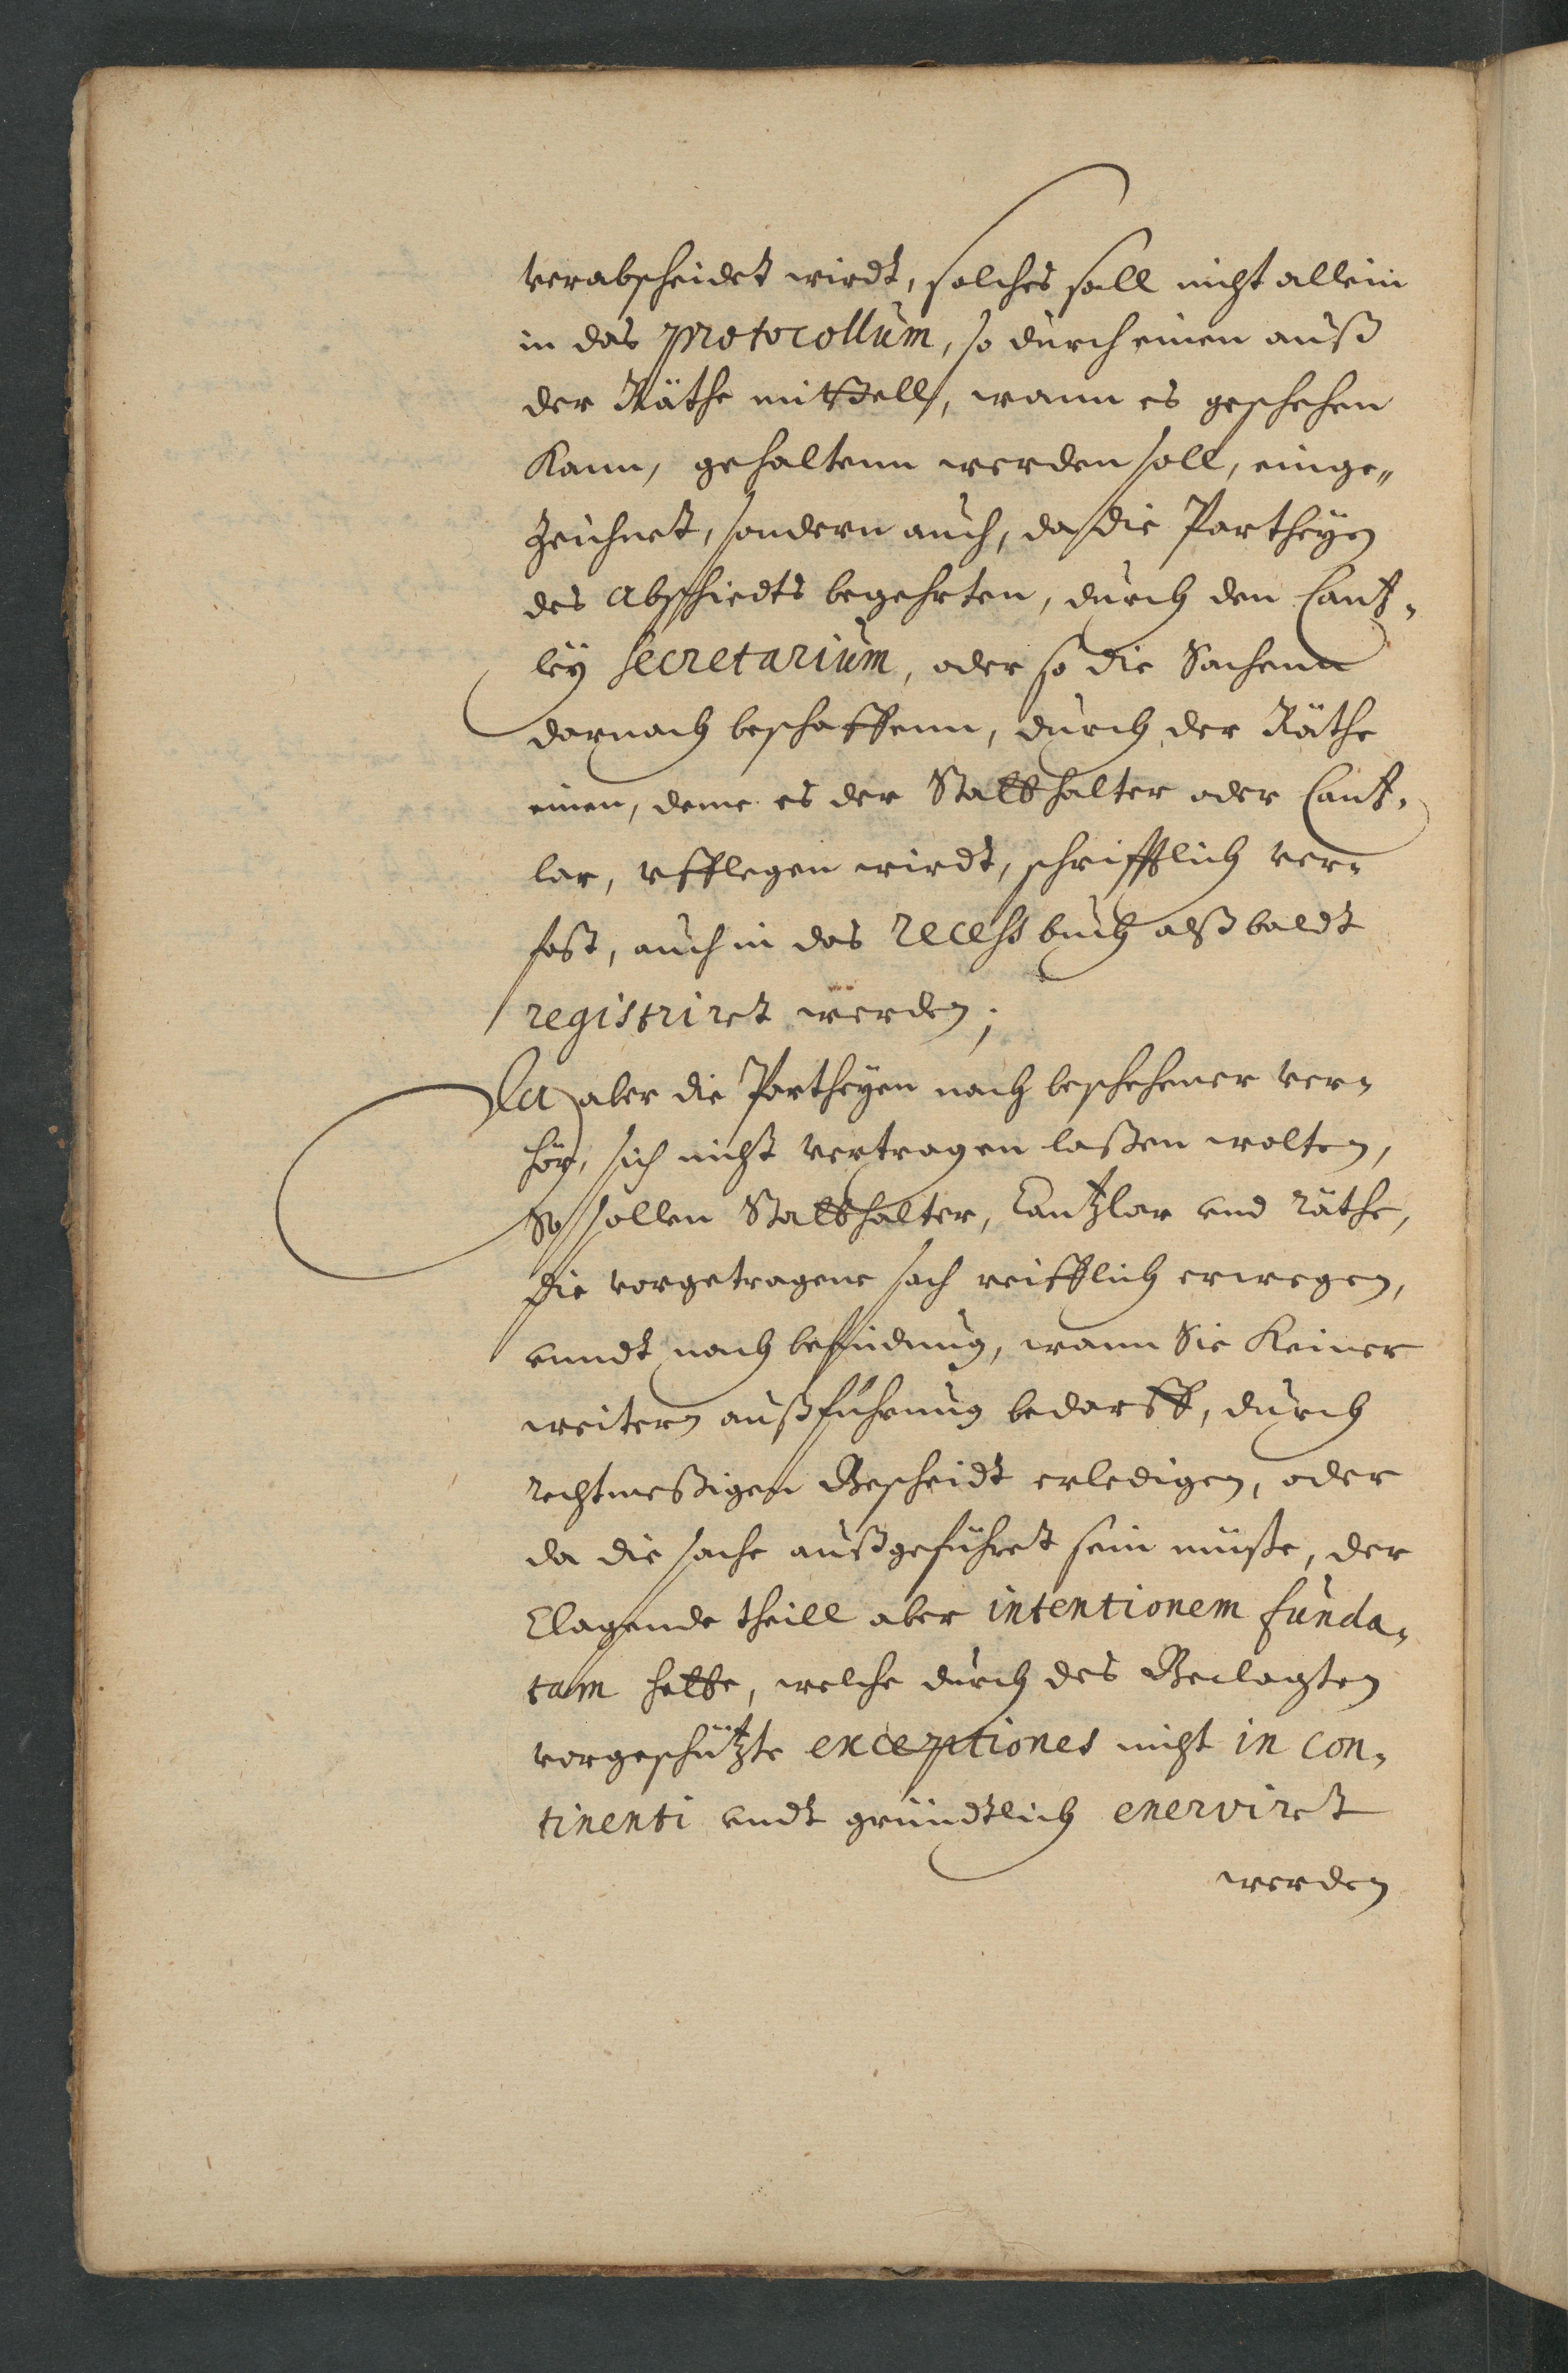 verabscheidet wirdt, solches soll nicht allein
in das protocollum, so durch einen auß
der Räthe mittell, wann es geschehen
kann, gehaltenn werden soll, einge„
zeichnet, sondern auch, da die Partheyen
des Abschiedts begehrten, durch den Cantz„
ley Secretarium, oder so die Sachenn
darnach beschaffenn, durch der Räthe
einen, deme es der Statthalter oder Cantz„
lar, ufflegen wirdt, schrifftlich ver„
fast, auch in das recess buch alßbaldt
registriret werden;
Da aber die Partheyen nach beschehener ver„
hör, sich nicht vertragen laßen wolten,
So sollen Statthalter, Cantzlar und Räthe,
die vorgetragene sach reifflich erwegen,
unndt nach befindung, wann Sie keiner
weitern außführung bedarff, durch
rechtmeßigen Bescheidt erledigen, oder
da die sache außgeführet sein müße, der
Clagende theill aber intentionem funda„
tam hette, welche durch des Beclagten
vorgeschützte exceptiones nicht in con„
tinenti undt gründtlich enerviret
werden